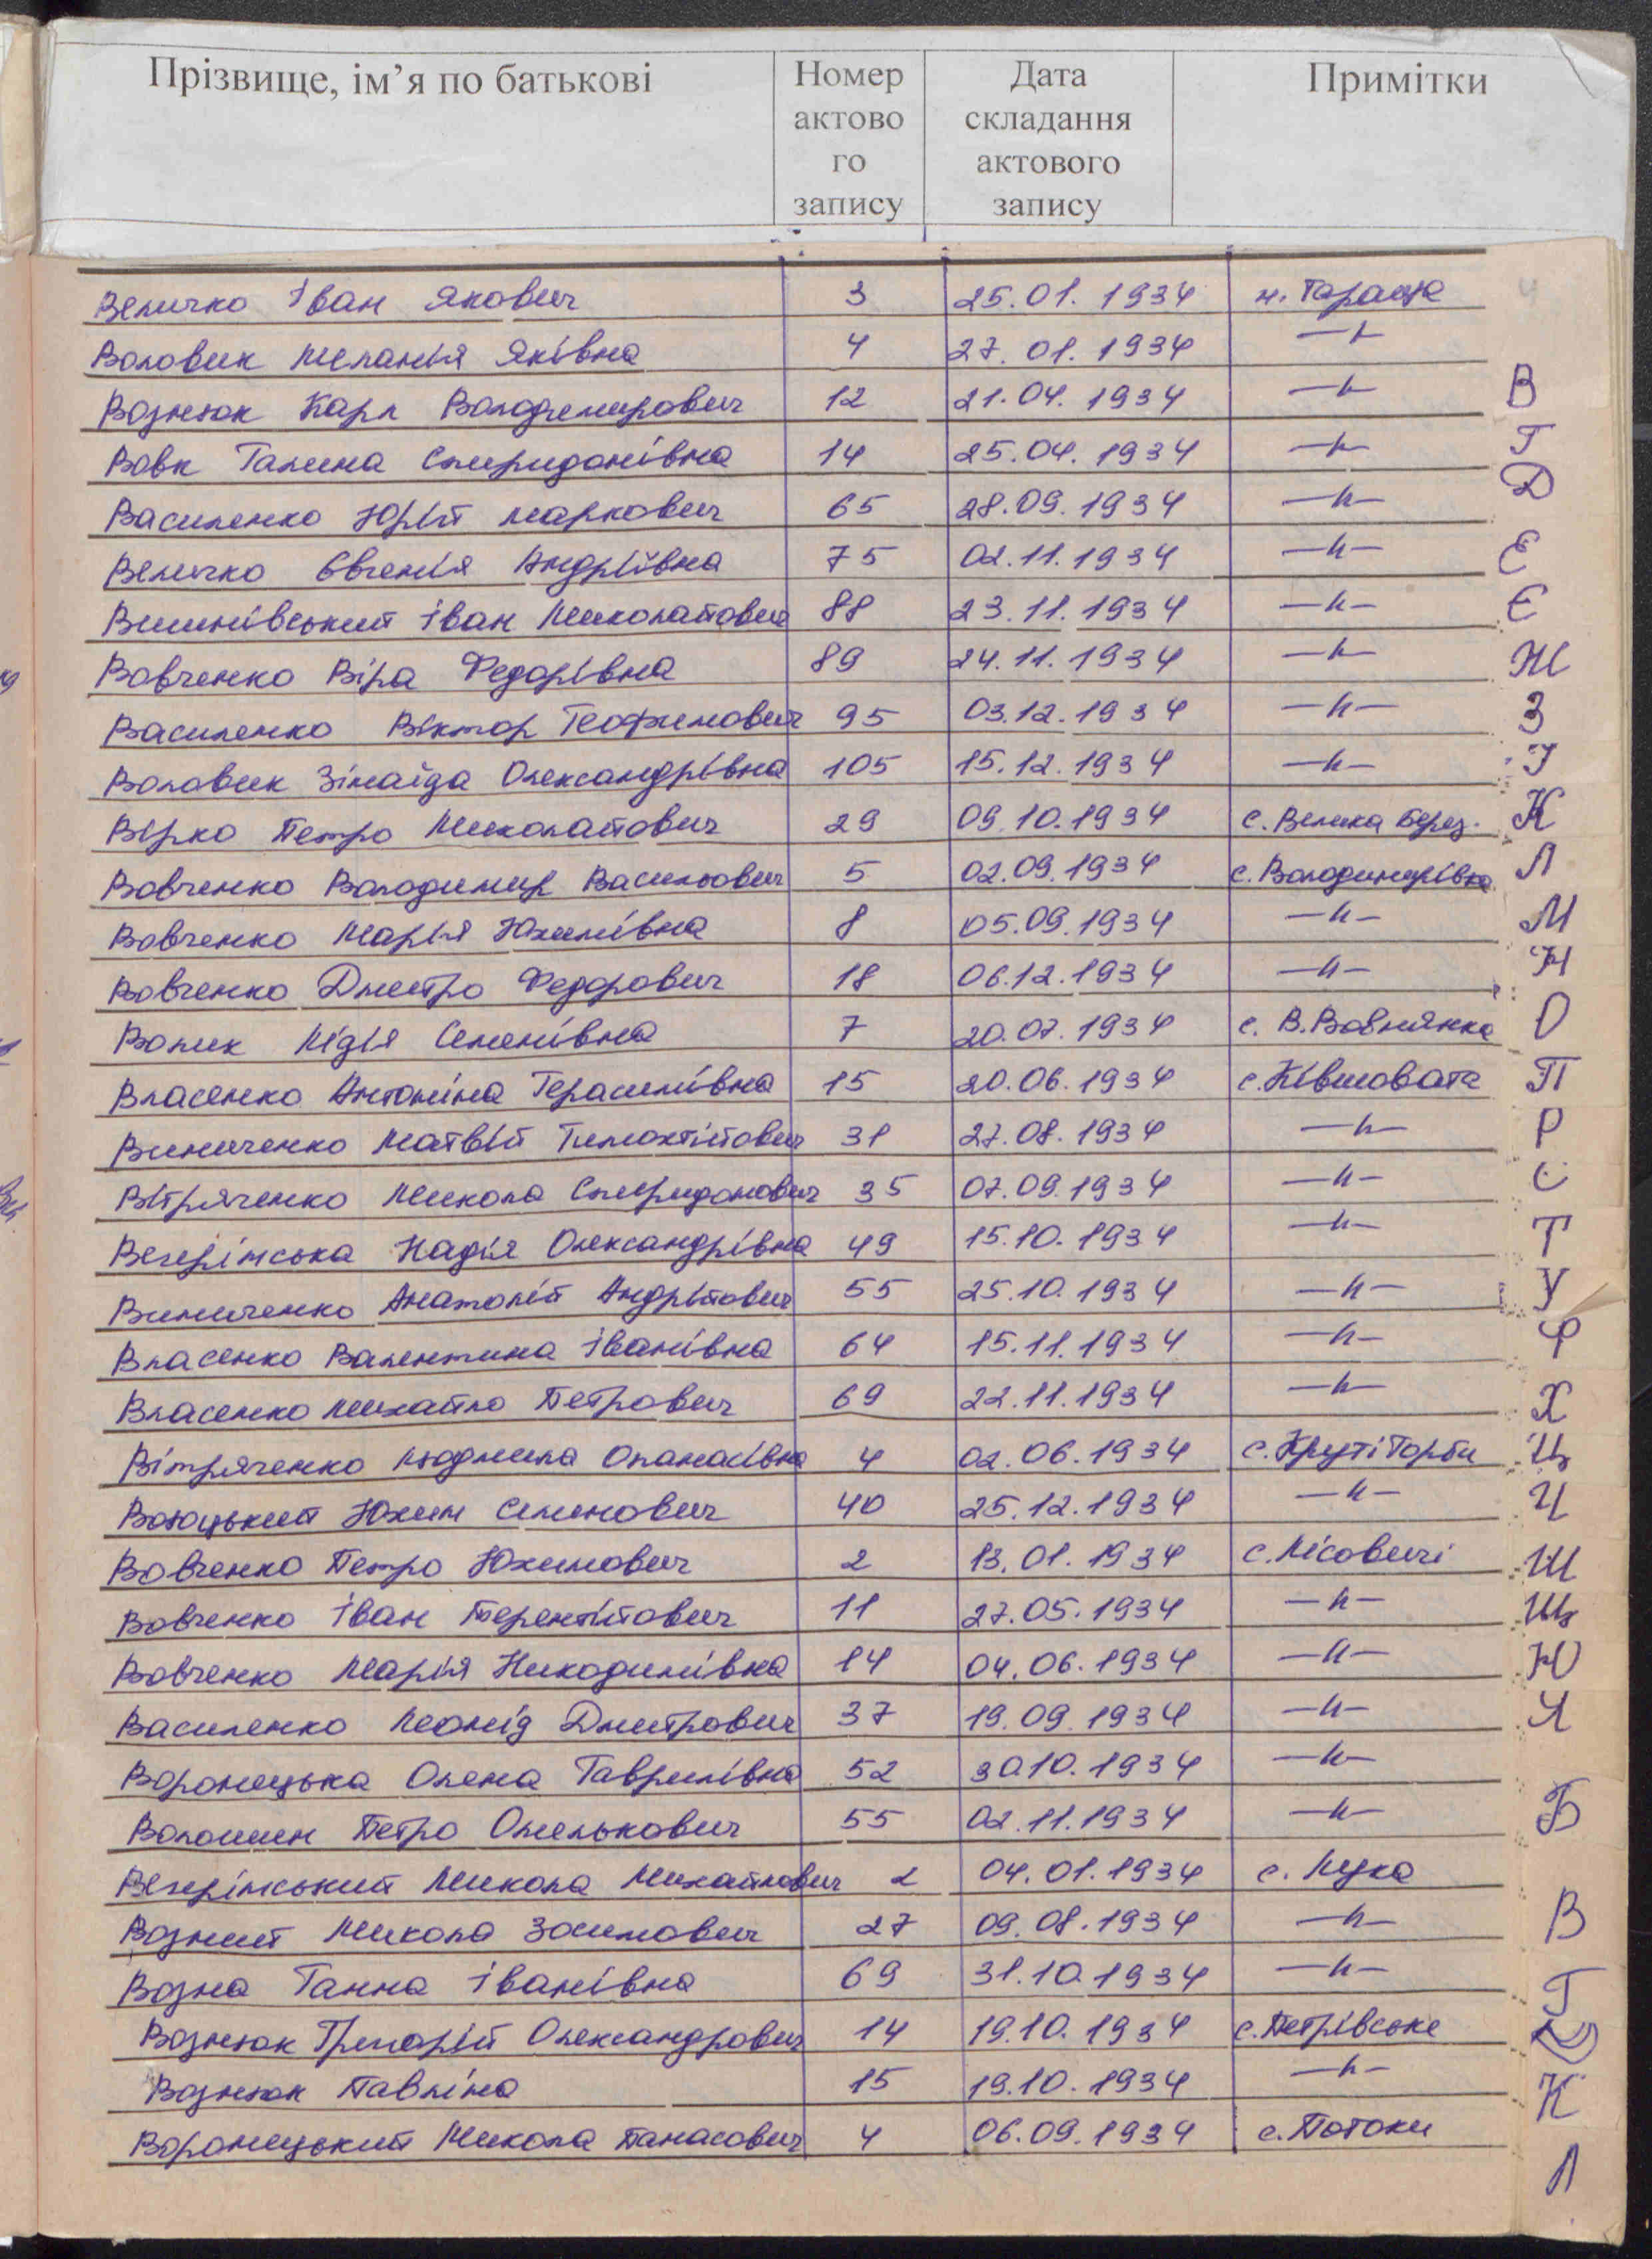 Прізвище, ім'я по батькові Номер актово го запису Дата складання актового запису Примітки
Величко Іван Якович 3 25.01.1934 м. Тараща
Воловик Меланія Яківна 4 27.01.1934 —"—
Вознюк Карл Володимирович 12 21.04.1934 —"— В
Вовк Галина Спиридонівна 14 25.04.1934 —"— Г
Василенко Юрій Маркович 65 28.09.1934 —"— Д
Величко Євгенія Андріївна 75 02.11.1934 —"— Е
Вишнівський Іван Миколайович 88 23.11.1934 —"— Є
Вовченко Віра Федорівна 89 24.11.1934 —"— Ж
Василенко Віктор Теофимович 95 03.12.1934 —"— З
Воловик Зінаїда Олександрівна 105 15.12.1934 —"— І
Вірко Петро Миколайович 29 09.10.1934 с. Велика Берез. К
Вовченко Володимир Васильович 5 02.09.1934 с. Володимирівка Л
Вовченко Марія Юхимівна 8 05.09.1934 —"— М
Вовченко Дмитро Федорович 18 06.12.1934 —"— Н
Волик Лідія Семенівна 7 20.07.1934 с. В. Вовнянка О
Власенко Антоніна Герасимівна 15 20.06.1934 с. Ківшовата П
Виниченко Матвій Тимохтійович 31 27.08.1934 —"— Р
Вітряченко Микола Спиридонович 35 07.09.1934 —"— С
Вегерінська Надія Олександрівна 49 15.10.1934 —"— Т
Виниченко Анатолій Андрійович 55 25.10.1934 —"— У
Власенко Валентина Іванівна 64 15.11.1934 —"— Ф
Власенко Михайло Петрович 69 22.11.1934 —"— Х
Вітряченко Людмила Опанасівна 4 02.06.1934 с. Круті Горби Ц
Юхим Семенович 40 25.12.1934 —"— Ч
Вовченко Петро Юхимович 2 13.01.1934 с. Лісовичі Ш
Вовченко Іван Терентійович 11 27.05.1934 —"— Щ
Вовченко Марія Никодимівна 14 04.06.1934 —"— Ю
Василенко Леонід Дмитрович 37 19.09.1934 —"— Я
Воронецька Олена Гаврилівна 52 30.10.1934 —"—
Волошин Петро Омелькович 55 02.11.1934 —"— Б
Вегерінський Микола Михайлович 2 04.01.1934 с. Лука
Возний Микола Зосимович 27 09.08.1934 —"— В
Возна Ганна Іванівна 69 31.10.1934 —"— Г
Вознюк Григорій Олександрович 14 19.10.1934 с. Петрівське Д
Вознюк Павліна 15 19.10.1934 —"— К
Воронецький Микола Панасович 4 06.09.1934 с. Потоки
Л